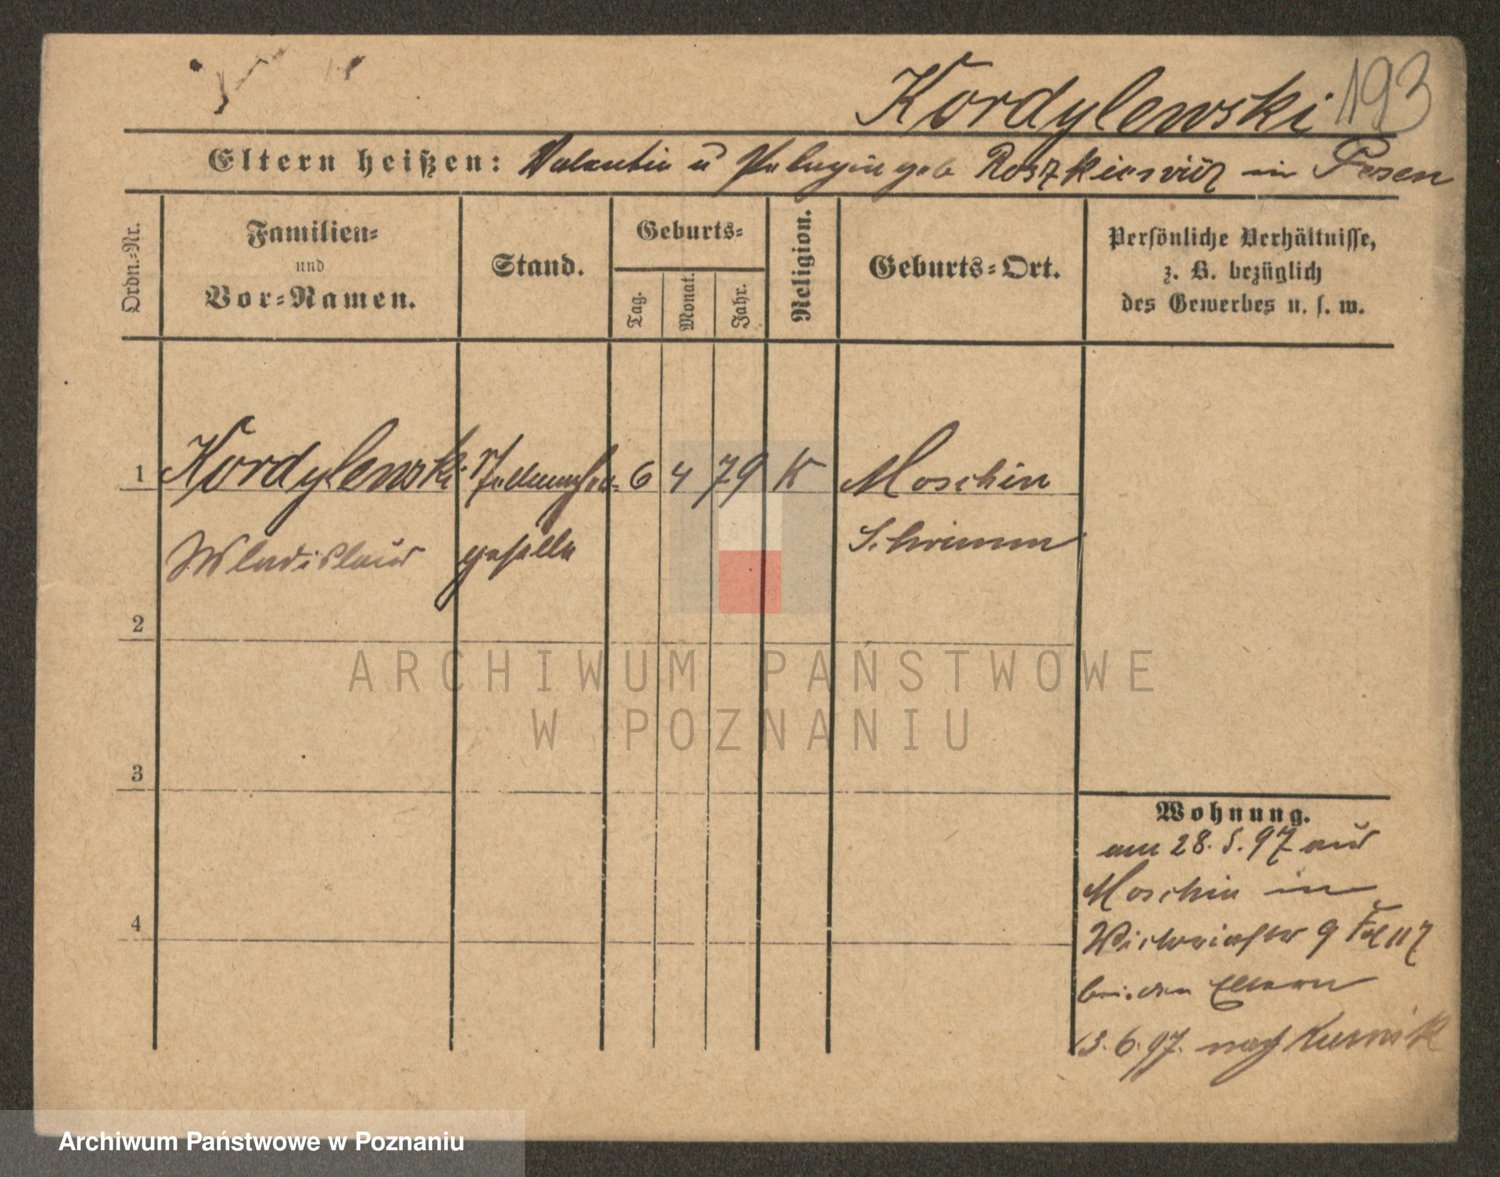 Kordylewski 193
Eltern heißen: Valentin u Pelagia geb Roszkiewicz in Posen
Ordn.-Nr.
Familien-
und
Vor-Namen.
Stand.
Geburts-
Tag.
Monat.
Jahr.
Religion.
Geburts-Ort.
Persönliche Verhältnisse,
z. B. bezüglich
des Gewerbes u. s. w.
1 Kordylewski 6 4 79 K Moschin
Wladislaus geselle Schrimm
2
3
4
Wohnung.
am 28. 5. 97 aus
Moschin in
Victoriastr 9
bei den Eltern
3. 6. 97. nach Kurnik
ARCHIWUM PAŃSTWOWE
W POZNANIU
Archiwum Państwowe w Poznaniu